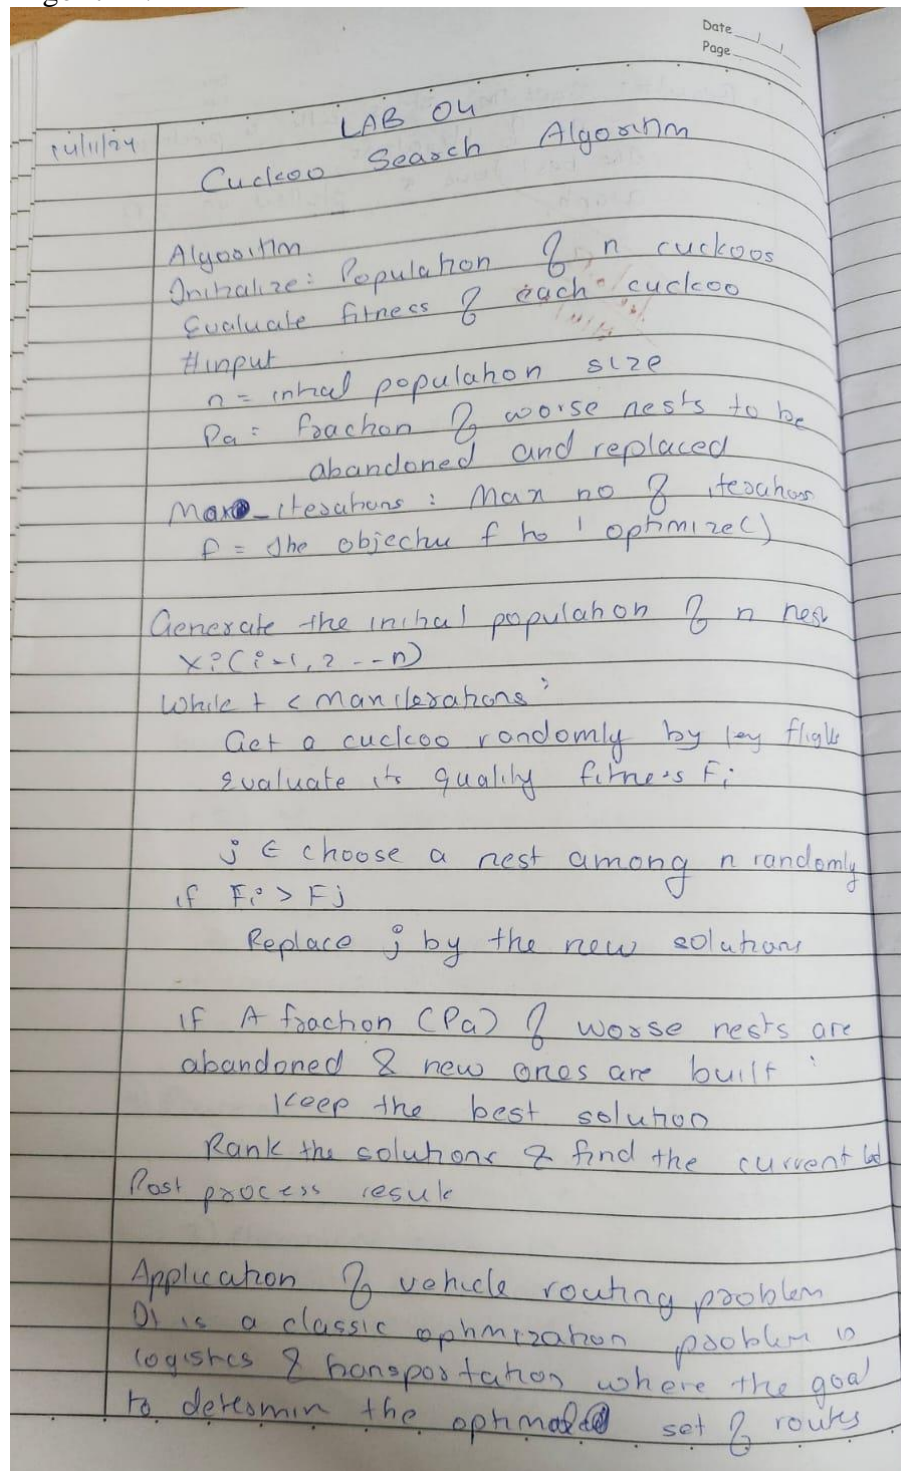 Date
Page
LAB 04
14/11/24
Cuckoo Search Algorithm
Algorithm
Initialize: Population of n cuckoos
Evaluate fitness of each cuckoo
#input
n = intial population size
Pa = fraction of worse nests to be
abandoned and replaced
Max_iterations : Max no of iterations
f = the objective f to optimize()
Generate the initial population of n nest
xi(i=1, 2 --n)
While t < maniterations:
Get a cuckoo randomly by levy flights
Evaluate its quality fitness Fi
j ∈ choose a nest among n randomly
if Fi > Fj
Replace j by the new solutions
if A fraction (Pa) of worse nests are
abandoned & new ones are built :
Keep the best solution
Rank the solutions & find the current
Post process result
Application of vehicle routing problem
It is a classic optimization problem in
logistics & transportation where the goal
to determin the optimal set of routes